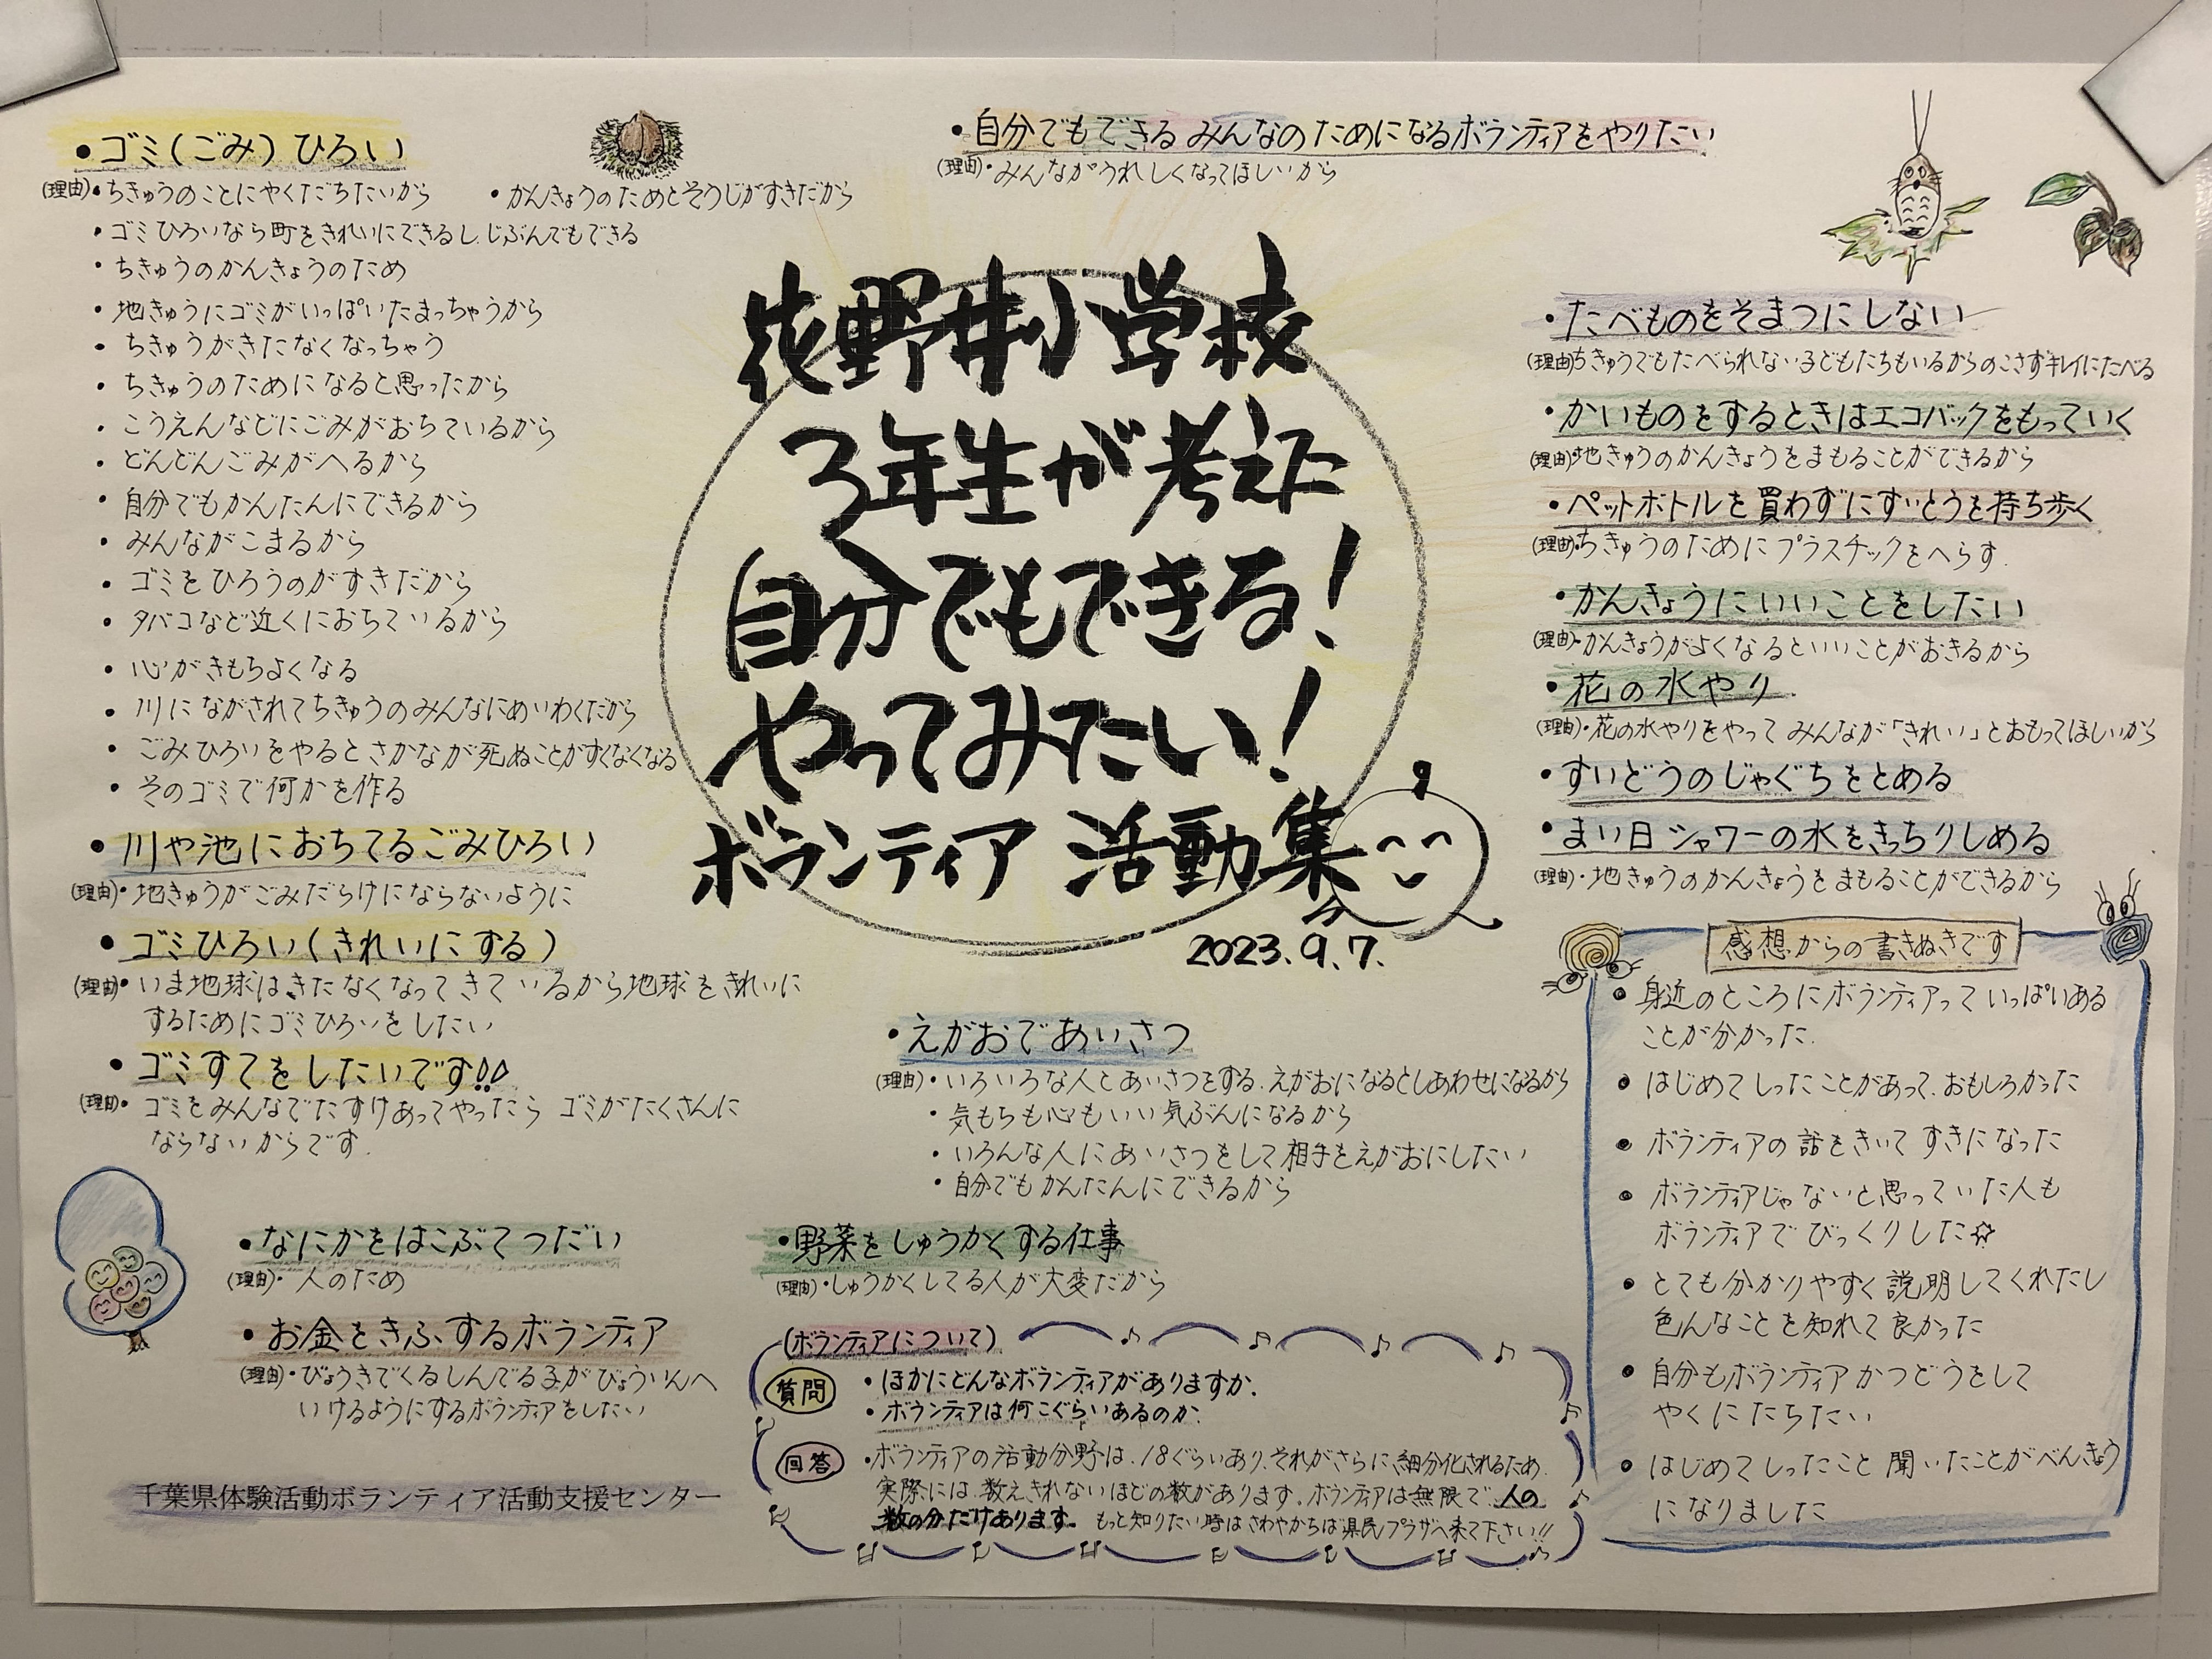 花野井小学校
3年生が考えた
自分でもできる!
やってみたい!
ボランティア活動集
2023.9.7.
・ゴミ(ごみ)ひろい
(理由)・ちきゅうのことにやくだちたいから
・かんきょうのためとそうじがすきだから
・ゴミひろいなら町をきれいにできるし、じぶんでもできる
・ちきゅうのかんきょうのため
・地きゅうにゴミがいっぱいたまっちゃうから
・ちきゅうがきたなくなっちゃう
・ちきゅうのためになると思ったから
・こうえんなどにごみがおちているから
・どんどんごみがへるから
・自分でもかんたんにできるから
・みんながこまるから
・ゴミをひろうのがすきだから
・タバコなど近くにおちているから
・心がきもちよくなる
・川にながされてちきゅうのみんなにめいわくだから
・ごみひろいをやるとさかなが死ぬことがすくなくなる
・そのゴミで何かを作る
・川や池におちてるごみひろい
(理由)・地きゅうがごみだらけにならないように
・ゴミひろい(きれいにする)
(理由)・いま地球はきたなくなってきているから地球をきれいに
するためにゴミひろいをしたい
・ゴミすてをしたいです!!
(理由)・ゴミをみんなでたすけあってやったら ゴミがたくさんに
ならないからです.
・なにかをはこぶてつだい
(理由)・人のため
・お金をきふするボランティア
(理由)・びょうきでくるしんでる子がびょういんへ
いけるようにするボランティアをしたい
千葉県体験活動ボランティア活動支援センター
・自分でもできる みんなのためになるボランティアをやりたい
(理由)・みんながうれしくなってほしいから
・えがおであいさつ
(理由)・いろいろな人とあいさつをする.えがおになるとしあわせになるから
・気もちも心もいい気ぶんになるから
・いろんな人にあいさつをして相手をえがおにしたい
・自分でもかんたんにできるから
・野菜をしゅうかくする仕事
(理由)・しゅうかくしてる人が大変だから
(ボランティアについて)
質問
・ほかにどんなボランティアがありますか.
・ボランティアは何こぐらいあるのか.
回答
・ボランティアの活動分野は、18ぐらいあり、それがさらに細分化されるため
実際には数えきれないほどの数があります。ボランティアは無限で、人の
数の分だけあります。もっと知りたい時はさわやかちば県民プラザへ来て下さい!!
・たべものをそまつにしない
(理由)ちきゅうでもたべられない子どもたちもいるからのこさずキレイにたべる
・かいものをするときはエコバックをもっていく
(理由)・地きゅうのかんきょうをまもることができるから
・ペットボトルを買わずにすいとうを持ち歩く
(理由)・ちきゅうのためにプラスチックをへらす.
・かんきょうにいいことをしたい
(理由)・かんきょうがよくなるといいことがおきるから
・花の水やり
(理由)・花の水やりをやって みんなが「きれい」とおもってほしいから
・すいどうのじゃぐちをとめる
・まい日シャワーの水をきっちりしめる
(理由)・地きゅうのかんきょうをまもることができるから
感想からの書きぬきです
・身近のところにボランティアっていっぱいある
ことが分かった.
・はじめてしったことがあって、おもしろかった
・ボランティアの話をきいて すきになった
・ボランティアじゃないと思っていた人も
ボランティアでびっくりした☆
・とても分かりやすく説明してくれたし
色んなことを知れて良かった
・自分もボランティアかつどうをして
やくにたちたい
・はじめてしったこと 聞いたことがべんきょう
になりました